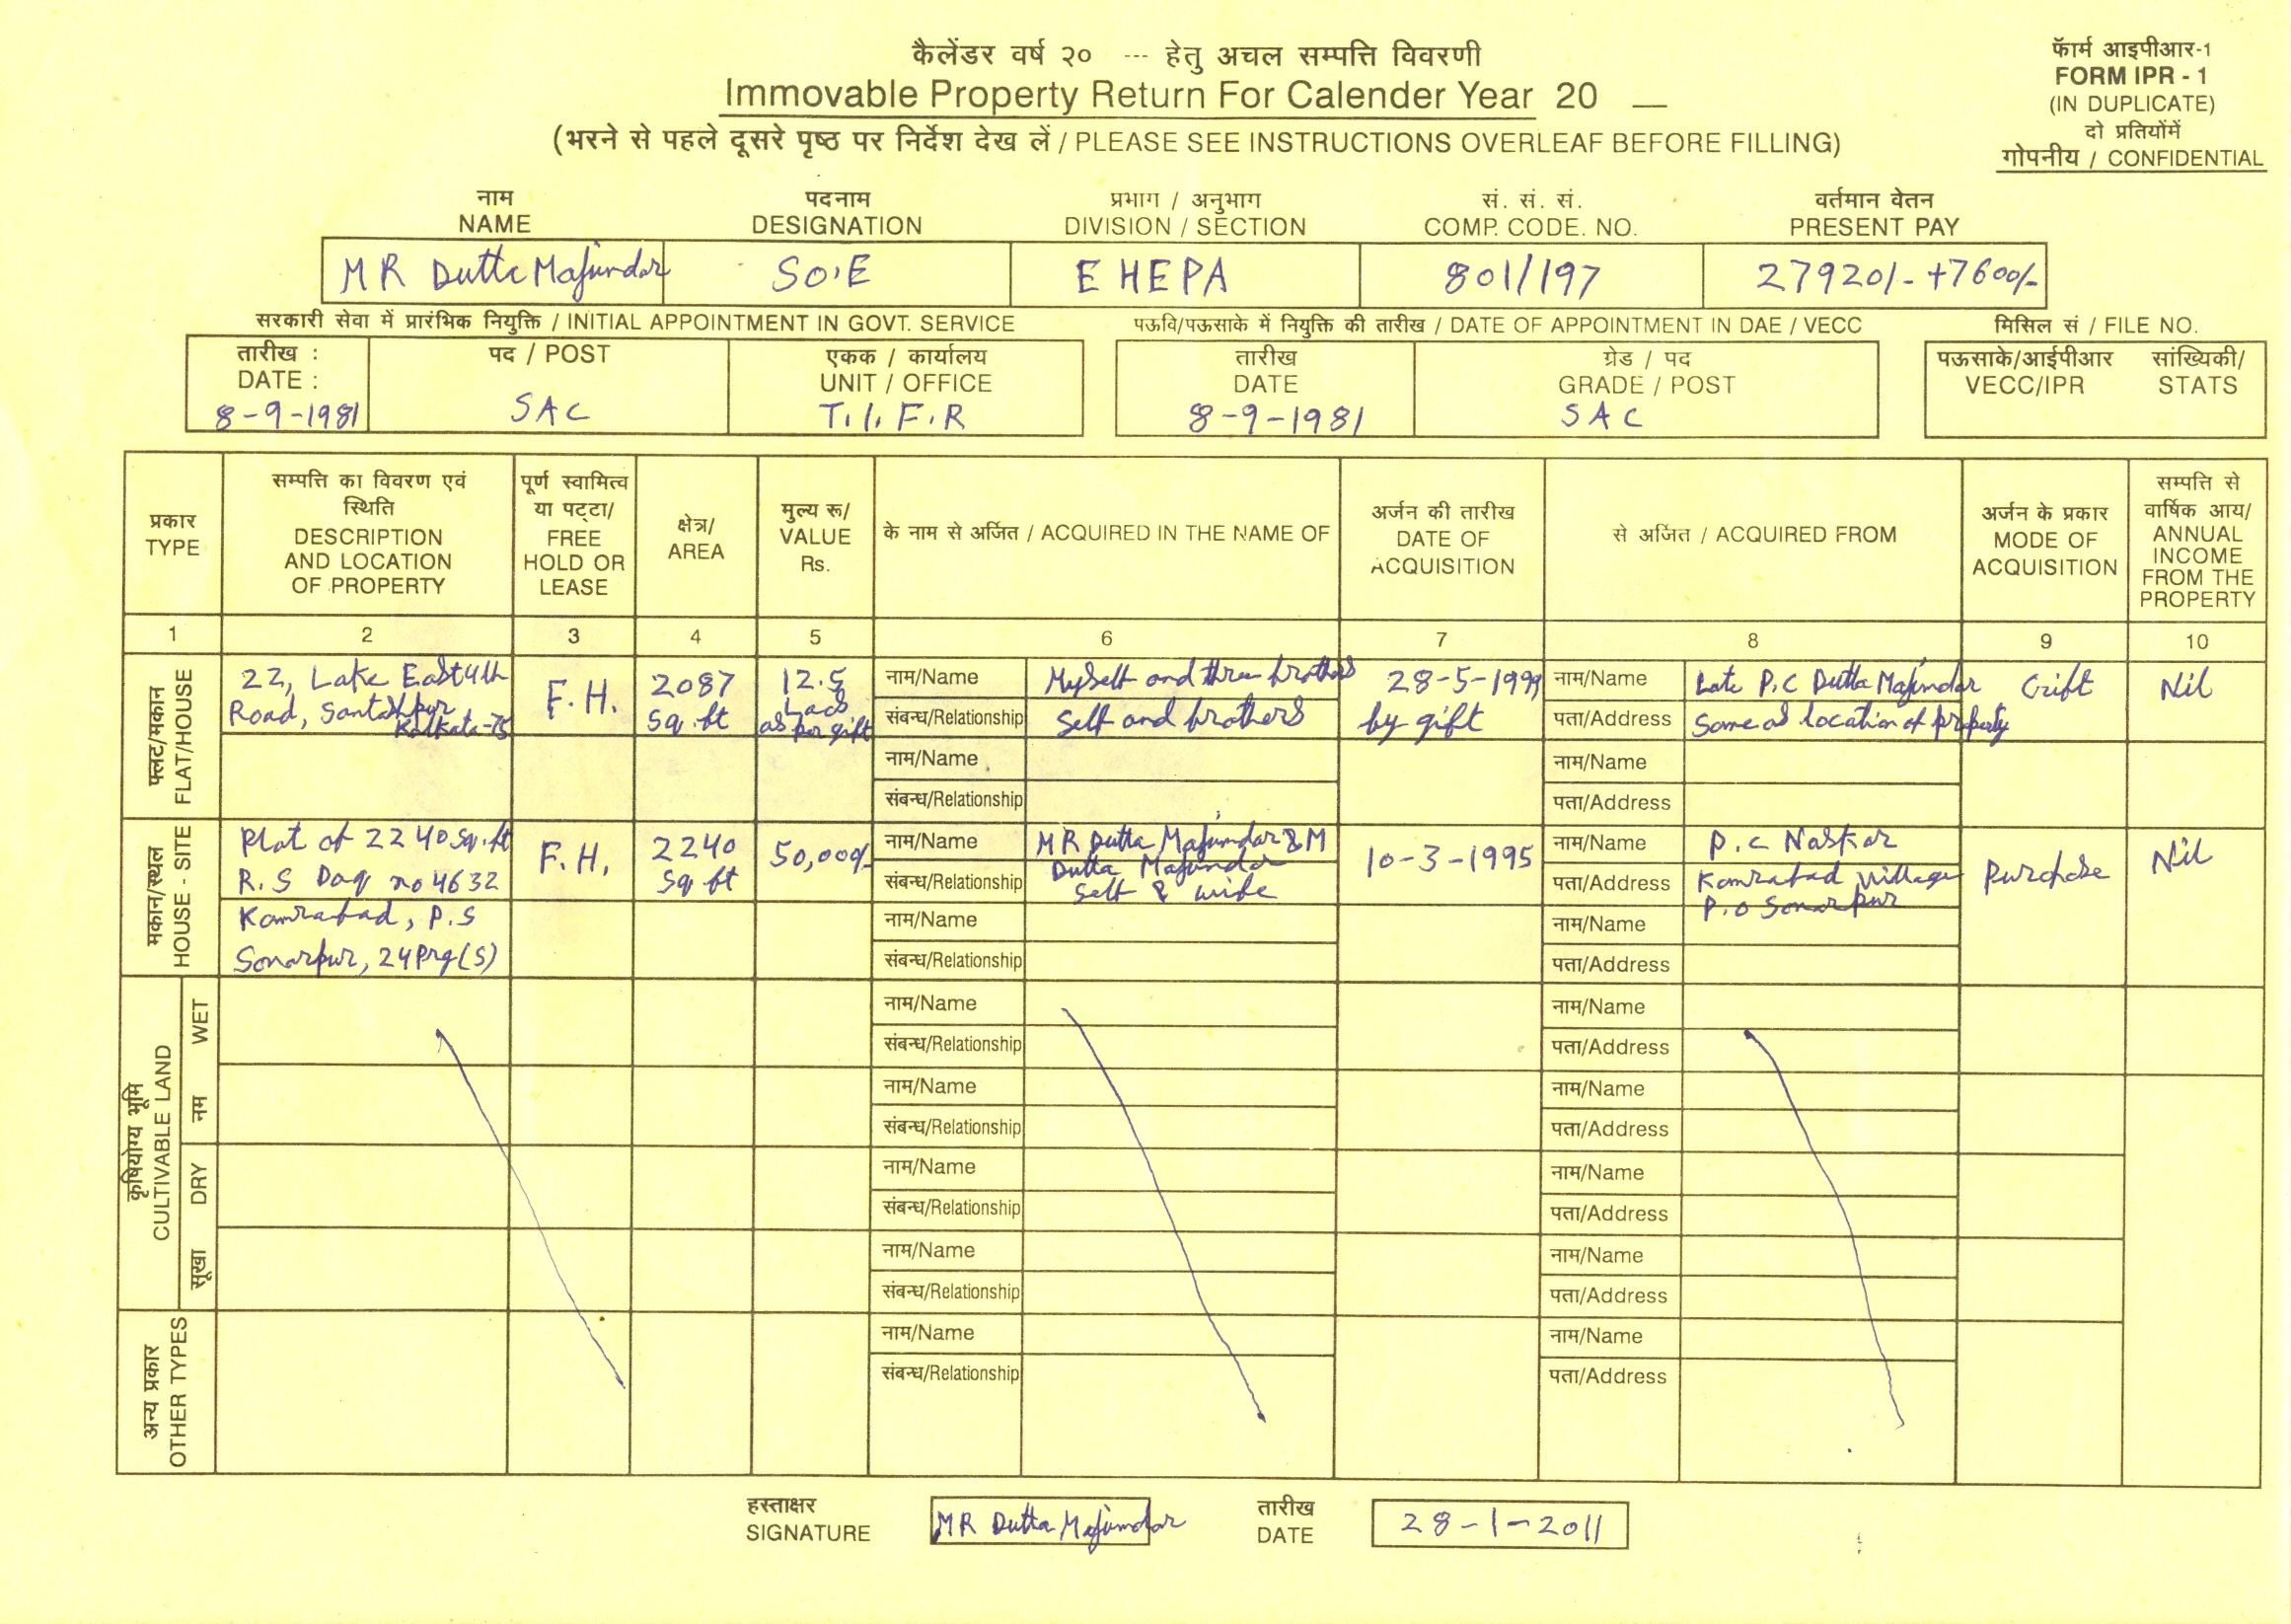 कैलेंडर वर्ष २० --- हेतु अचल सम्पत्ति विवरणी
Immovable Property Return For Calender Year 20 __
(भरने से पहले दूसरे पृष्ठ पर निर्देश देख लें / PLEASE SEE INSTRUCTIONS OVERLEAF BEFORE FILLING)
फॅार्म आइपीआर-1
FORM IPR - 1
(IN DUPLICATE)
दो प्रतियोंमें
गोपनीय / CONFIDENTIAL
नाम पदनाम प्रभाग / अनुभाग सं. सं. सं. वर्तमान वेतन
NAME DESIGNATION DIVISION / SECTION COMP. CODE. NO. PRESENT PAY
MR Dutta Majumdar SO.E E HEPA 801/197 27920/- +7600/-
सरकारी सेवा में प्रारंभिक नियुक्ति / INITIAL APPOINTMENT IN GOVT. SERVICE पऊवि/पऊसाके में नियुक्ति की तारीख / DATE OF APPOINTMENT IN DAE / VECC मिसिल सं / FILE NO.
तारीख : पद / POST एकक / कार्यालय तारीख ग्रेड / पद पऊसाके/आईपीआर सांख्यिकी/
DATE : UNIT / OFFICE DATE GRADE / POST VECC/IPR STATS
8-9-1981 SAC T.I.F.R 8-9-1981 SAC
प्रकार
TYPE
सम्पत्ति का विवरण एवं
स्थिति
DESCRIPTION
AND LOCATION
OF PROPERTY
पूर्ण स्वामित्व
या पट्टा/
FREE
HOLD OR
LEASE
क्षेत्र/
AREA
मुल्य रू/
VALUE
Rs.
के नाम से अर्जित / ACQUIRED IN THE NAME OF
अर्जन की तारीख
DATE OF
ACQUISITION
से अर्जित / ACQUIRED FROM
अर्जन के प्रकार
MODE OF
ACQUISITION
सम्पत्ति से
वार्षिक आय/
ANNUAL
INCOME
FROM THE
PROPERTY
1 2 3 4 5 6 7 8 9 10
फ्लैट/मकान
FLAT/HOUSE
22, Lake East 4th
Road, Santoshpur
Kolkata-75
F.H.
2087
sq.ft
12.5
Lacs
as per gift
नाम/Name Myself and three brothers
संबन्ध/Relationship Self and brothers
28-5-1999
by gift
नाम/Name Late P.C Dutta Majumdar
पता/Address Same as location of property
Gift
Nil
नाम/Name
संबन्ध/Relationship
नाम/Name
पता/Address
मकान/स्थल
HOUSE - SITE
Plot of 2240 sq.ft
R.S Dag no 4632
Komrabad, P.S
Sonarpur, 24 Prg(S)
F.H.
2240
sq ft
50,000/-
नाम/Name MR Dutta Majumdar & M
Dutta Majumdar
संबन्ध/Relationship Self & wife
10-3-1995
नाम/Name P.C Naskar
पता/Address Komrabad Village
P.O Sonarpur
Purchase
Nil
नाम/Name
संबन्ध/Relationship
नाम/Name
पता/Address
कृषियोग्य भूमि
CULTIVABLE LAND
नम WET
नाम/Name
संबन्ध/Relationship
नाम/Name
पता/Address
नाम/Name
संबन्ध/Relationship
नाम/Name
पता/Address
सूखा DRY
नाम/Name
संबन्ध/Relationship
नाम/Name
पता/Address
नाम/Name
संबन्ध/Relationship
नाम/Name
पता/Address
अन्य प्रकार
OTHER TYPES
नाम/Name
संबन्ध/Relationship
नाम/Name
पता/Address
हस्ताक्षर तारीख
SIGNATURE MR Dutta Majumdar DATE 28-1-2011